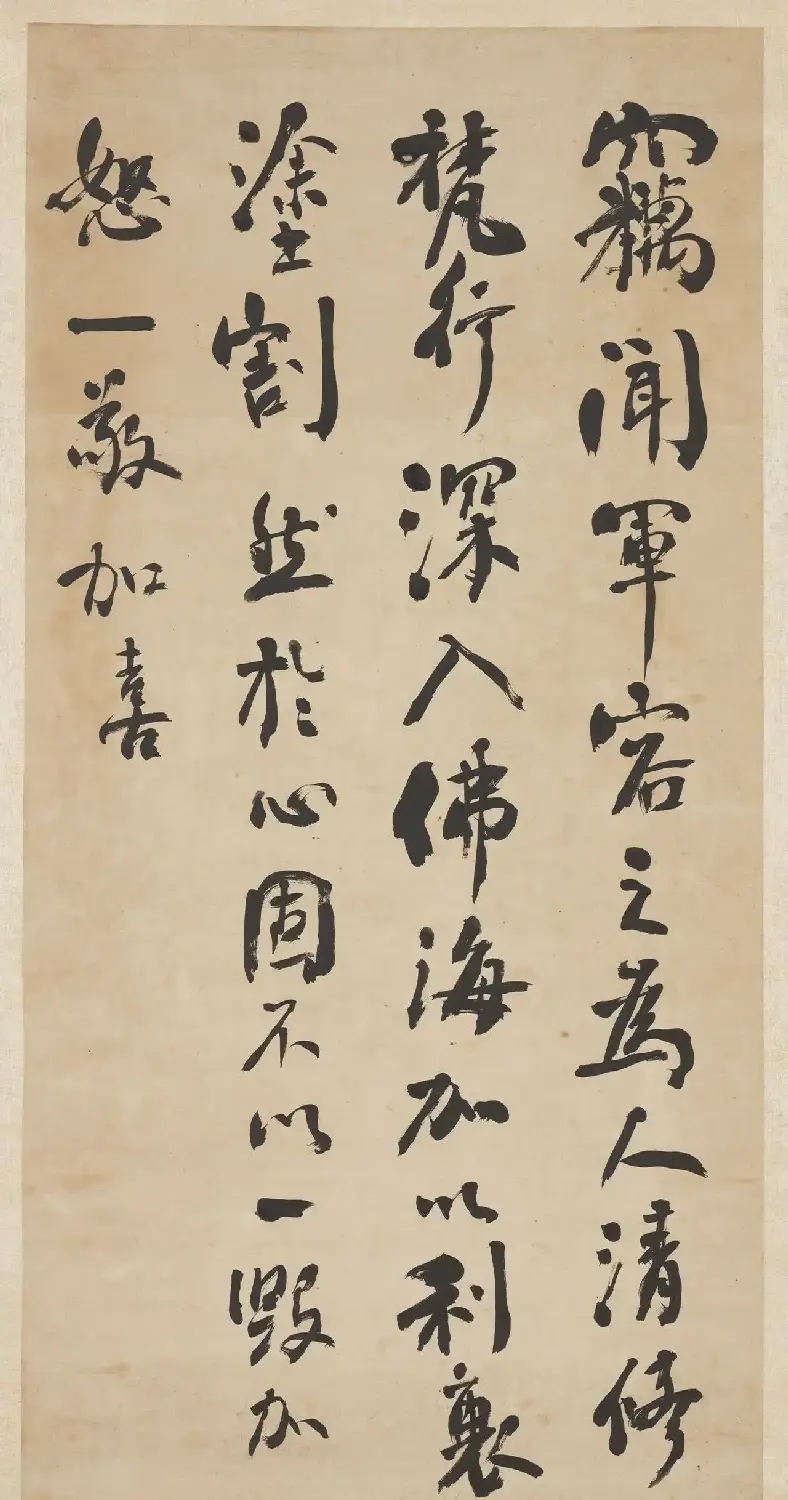 竊聞軍容之為人清修
梵行深入佛海加以利衰
塗割恬然於心固不以一毀加
怒一敬加喜